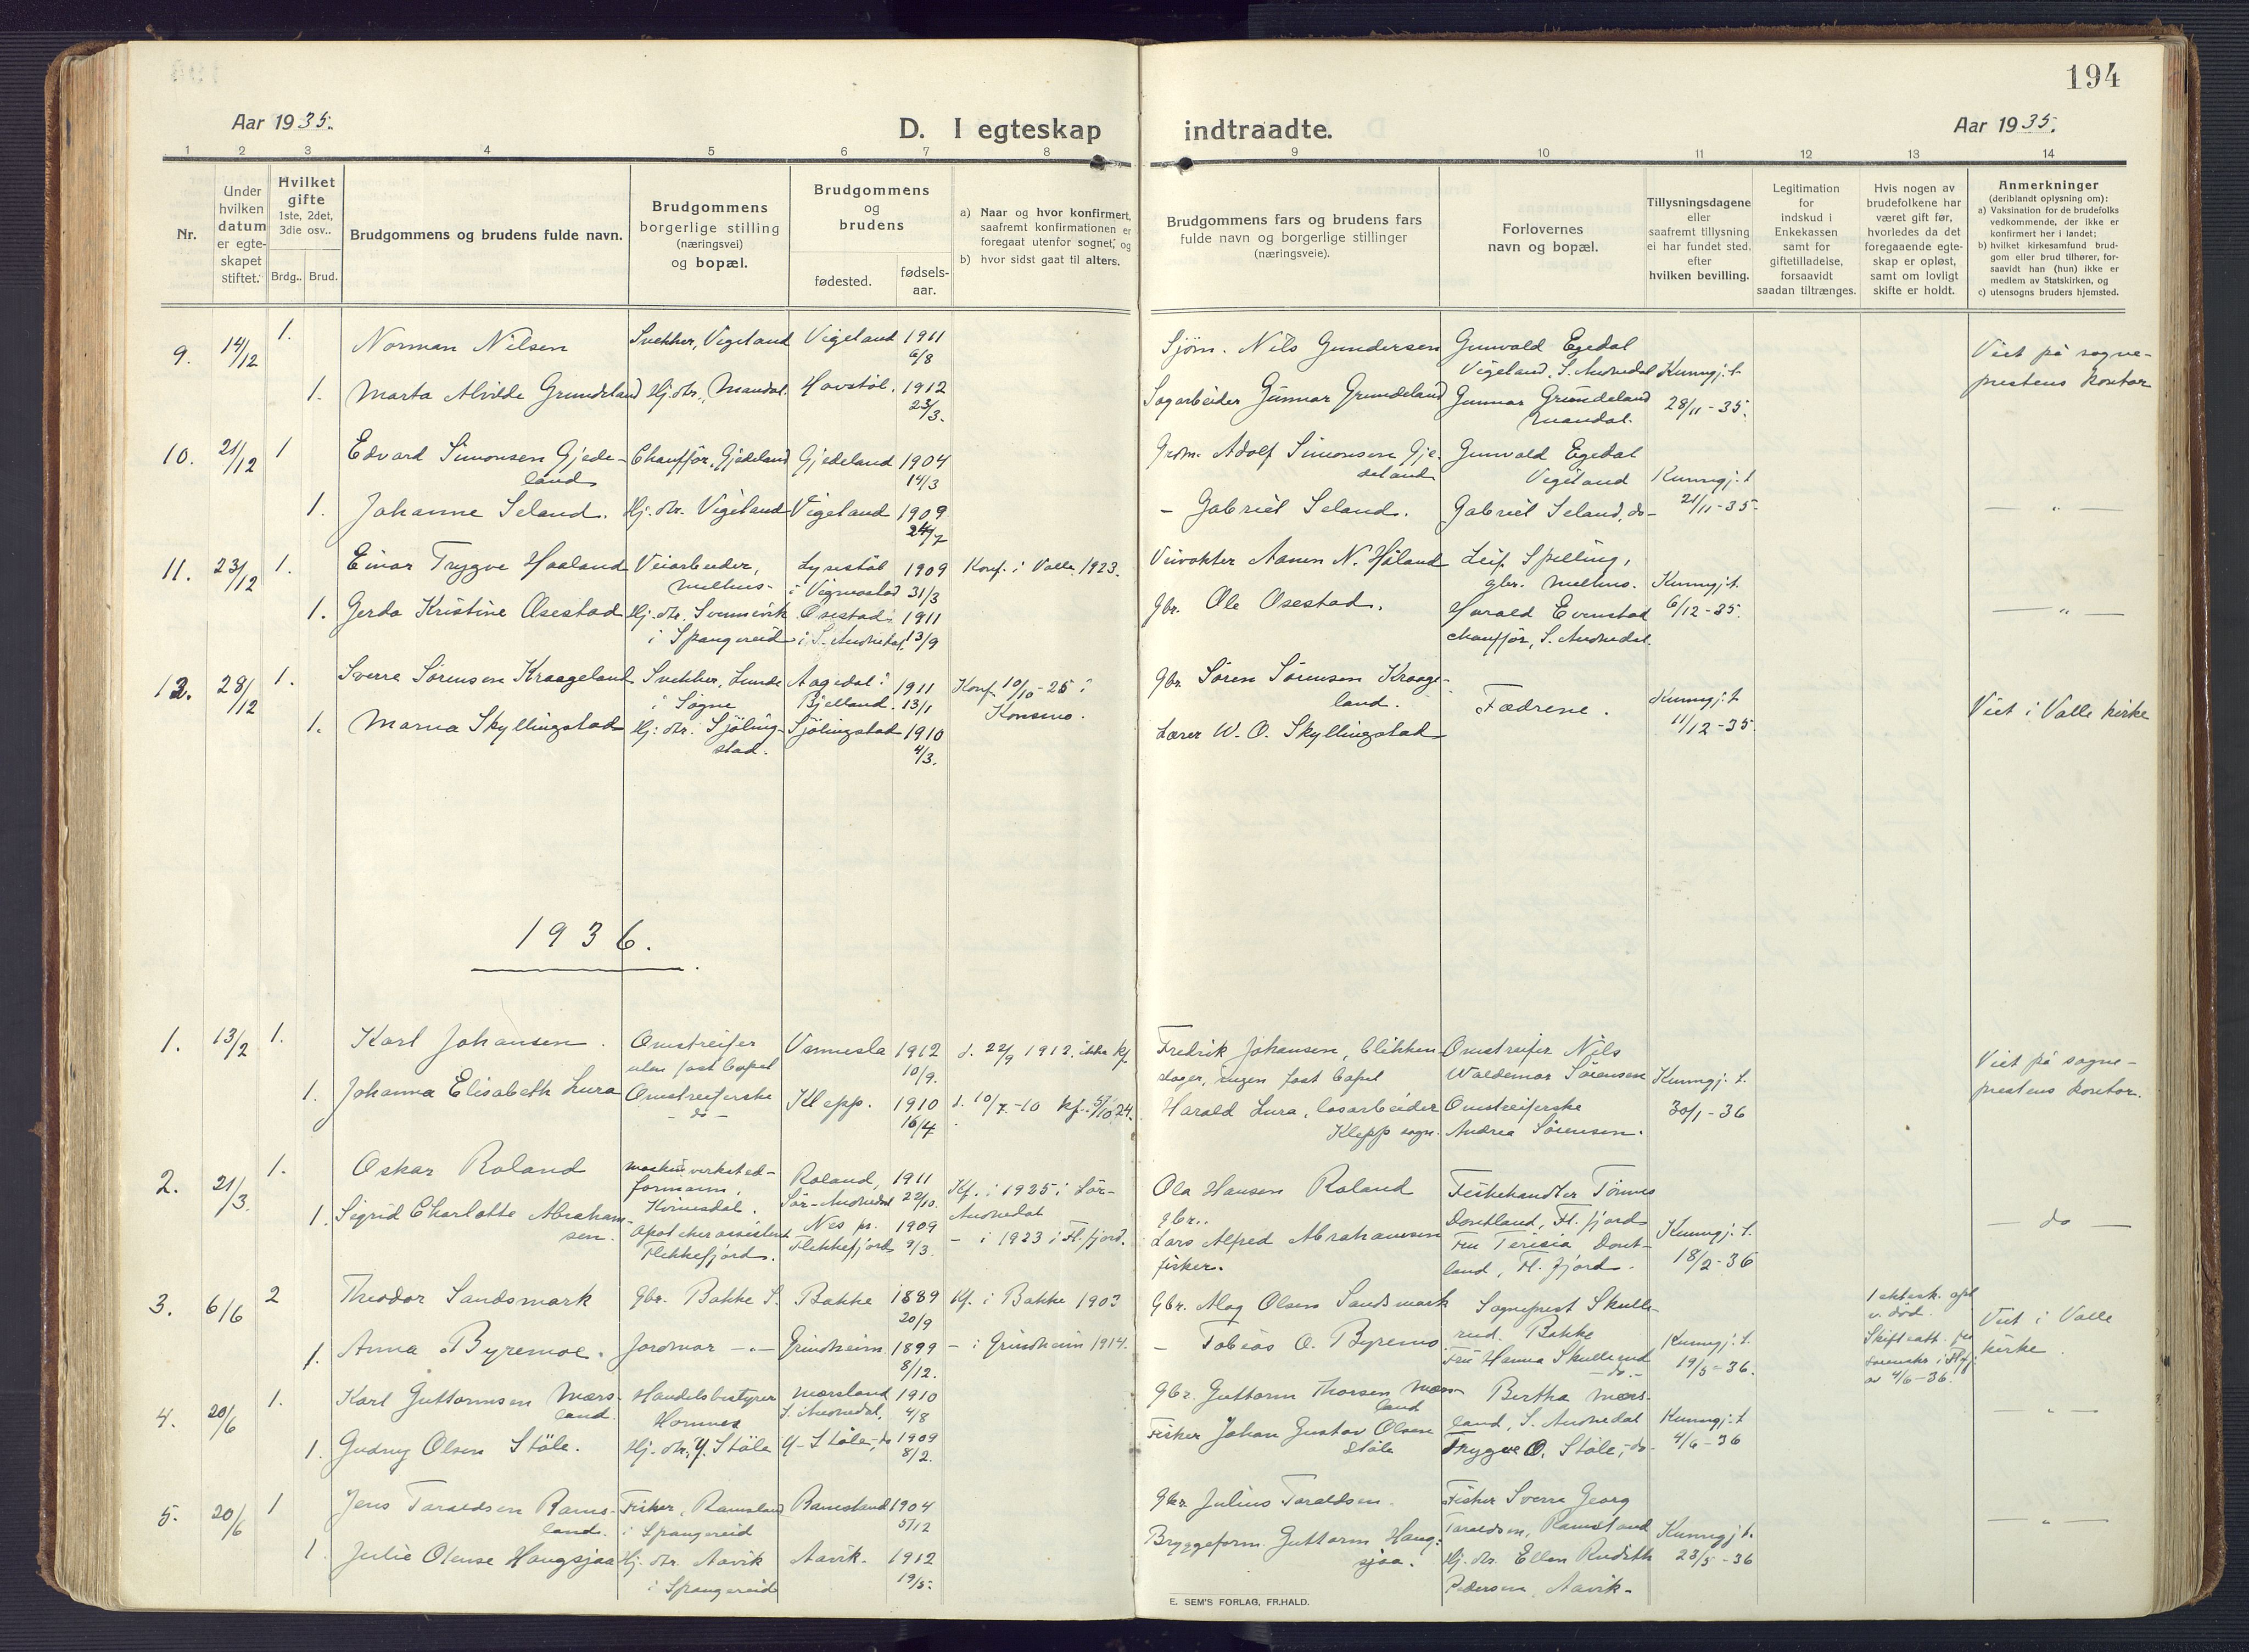 194
Aar 1935.
D. I egteskap
indtraadte.
Aar 1935.
1 2 3 4 5 6 7 8 9 10 11 12 13 14
Nr.
Under
hvilken
datum
er egte-
skapet
stiftet.
Hvilket
gifte
1ste, 2det,
3die osv..
Brdg.. Brud.
Brudgommens og brudens fulde navn.
Brudgommens
borgerlige stilling
(næringsvei)
og bopæl.
Brudgommens
og
brudens
fødested.
fødsels-
aar.
a) Naar og hvor konfirmert,
saafremt konfirmationen er
foregaat utenfor sognet, og
b) hvor sidst gaat til alters.
Brudgommens fars og brudens fars
fulde navn og borgerlige stillinger
(næringsveie).
Forlovernes
navn og bopæl.
Tillysningsdagene
eller
saafremt tillysning
ei har fundet sted,
efter
hvilken bevilling.
Legitimation
for
indskud i
Enkekassen
samt for
giftetilladelse,
forsaavidt
saadan tiltrænges.
Hvis nogen av
brudefolkene har
været gift før,
hvorledes da det
foregaaende egte-
skap er opløst,
samt om lovligt
skifte er holdt.
Anmerkninger
(deriblandt oplysning om):
a) Vaksination for de brudefolks
vedkommende, der ikke er
konfirmert her i landet;
b) hvilket kirkesamfund brud-
gom eller brud tilhører, for-
saavidt han (hun) ikke er
medlem av Statskirken, og
c) utensogns bruders hjemsted.
9. 14/12 1. Norman Nilsen Snekker, Vigeland Vigeland 1911 6/8 Sjøm. Nils Gundersen Gunvald Egedal
Vigeland, S. Audnedal Kunngj. t. Viet på sogne-
prestens kontor
1. Marta Alvilde Grundeland Hj. dtr., Mandal. Havstøl. 1912 23/3. Sagarbeider Gunnar Grundeland Gunnar Grundeland
Mandal. 28/11-35.
10. 21/12 1 Edvard Simonsen Gjede-
land Chauffør, Gjedeland Gjedeland 1904 14/3 Grdm. Adolf Simonsen Gje-
deland Gunvald Egedal
Vigeland Kunngj. t
1. Johanne Seland. Hj. dtr. Vigeland Vigeland 1909 24/7 - Gabriel Seland. Gabriel Seland, do- 21/11-35. — " —
11. 23/12 1. Einar Trygve Haaland Veiarbeider,
Melhus- Lysestøl
i Vigmostad 1909 31/3 Konf. i Valle 1923. Veivokter Aanen N. Håland Leif Spilling,
gbr. Melhus. Kunngj. t.
1. Gerda Kristine Osestad Hj. dtr. Svennevik
i Spangereid Osestad
i S. Audnedal 1911 13/9 Gbr. Ole Osestad. Harald Evenstad
chauffør, S. Audnedal. 6/12-35. — " —
12. 28/12 1. Sverre Sørensen Kraageland Snekker, Lunde
i Søgne Aagedal i
Bjelland. 1911 13/1 Konf. 10/10-25 i
Konsmo. Gbr. Søren Sørensen Kraage-
land. Fædrene. Kunngj. t
11/12-35. Viet i Valle kirke
1. Marna Skyllingstad Hj. dtr. Sjøling-
stad. Sjølingstad 1910 4/3. Lærer W. O. Skyllingstad
1936.
1. 13/2 1. Karl Johansen. Omstreifer
uten fast bopel Vennesla 1912 10/9. d. 22/9 1912. ikke kf. Fredrik Johansen, blikken-
slager, ingen fast bopel Omstreifer Nils
Waldemar Sørensen Kunngj. t. Viet på sogne-
prestens kontor.
1. Johanna Elisabeth Lura Omstreiferske
- do - Klepp. 1910 16/4 d. 10/7-10 kf. 5/10.24. Harald Lura, løsarbeider
Klepp sogn. Omstreiferske
Andrea Sørensen. 30/1-36
2. 21/3. 1. Oskar Roland Maskinverksted-
formann,
Kvinesdal. Roland,
Sør-Audnedal 1911 22/10. Kf. i 1925 i Sør-
Audnedal Ola Hansen Roland
gbr.. Fiskehandler Tønnes
Dostland, Fl. fjord Kunngj. t.
1. Sigrid Charlotte Abraham-
sen. Apothekerassistent
Flekkefjord. Nes pr.
Flekkefjord 1909 9/3. - i 1923 i Fl. fjord. Lars Alfred Abrahamsen
fisker. Fru Teresia Dost-
land, Fl. fjord. 18/2-36 — do —
3. 6/6 2 Theodor Sandsmark Gbr. Bakke S. Bakke 1889 20/9 Kf. i Bakke 1903 Gbr. Alog Olsen Sandsmark Sogneprest Skulle-
rud. Bakke Kunngj. t. 1 ektesk. opl
v. død.
Skifteatt. fra
sorenskr i Flfj.
av 4/6-36. Viet i Valle
kirke.
1. Anna Byremoe. Jordmor - " - Grindheim 1899 8/12. - i Grindheim 1914. - Tobias O. Byremo Fru Hanna Skullerud
- do - 19/5-36.
4. 20/6 1. Karl Guttormsen Mørs-
land. Handelsbestyrer
Homnes Mørsland
S. Audnedal, 1910 4/8 Gbr. Guttorm Thorsen Møre-
land Bertha Mørs-
land, S. Audnedal Kunngj. t — " —
1. Gudny Olsen Støle. Hj. dtr. Y. Støle Y- Støle, do 1909 8/2. Fisker Johan Gustav Olsen
Støle Trygve O. Støle, - do- 4/6-36
5. 20/6 1 Jens Taraldsen Rams-
land. Fisker, Ramsland
i Spangereid Ramsland 1904 5/12 Gbr Julius Taraldsen. Fisker Sverre Georg
Taraldsen, Ramsland Kunngj t. — " —
1. Julie Olense Haugsjaa Hj. dtr. Aavik
i Spangereid Aavik. 1912 19/5. Bryggeform. Guttorm Haug-
sjaa. Hj. dtr. Ellen Rudith
Pedersen, Aavik- 23/5-36
E. SEM'S FORLAG, FR.HALD.